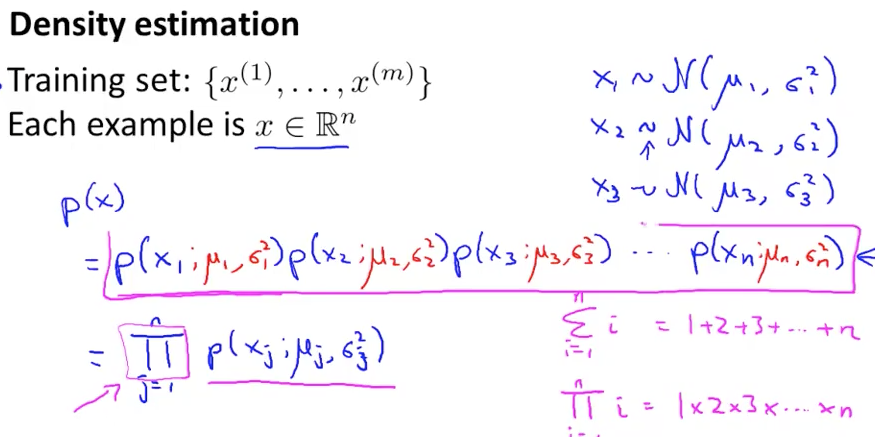 Density estimation
Training set: {x^(1), . . . , x^(m)}
Each example is x ∈ ℝ^n
x₁ ~ N(μ₁, σ₁²)
x₂ ~ N(μ₂, σ₂²)
x₃ ~ N(μ₃, σ₃²)
p(x)
= p(x₁; μ₁, σ₁²) p(x₂; μ₂, σ₂²) p(x₃; μ₃, σ₃²) ... p(xₙ; μₙ, σₙ²)
= ∏_{j=1}^{n} p(x_j; μ_j, σ_j²)
∑_{i=1}^{n} i = 1+2+3+...+n
∏_{i=1}^{n} i = 1×2×3×...×n